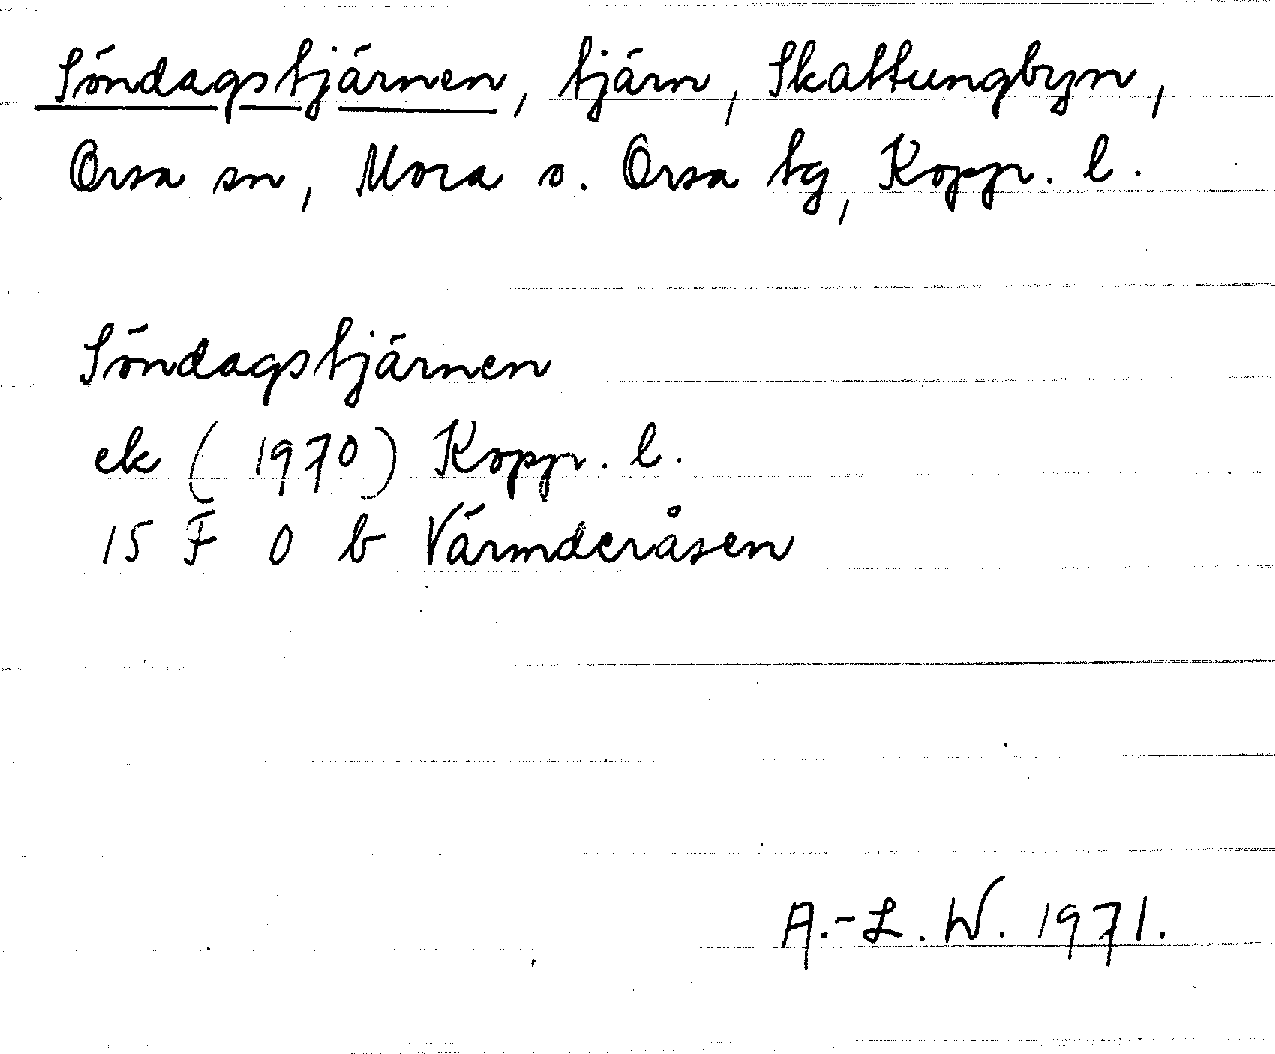 Söndagstjärnen, tjärn, Skattungbyn,
Orsa sn, Mora o. Orsa tg, Koppr. l.
Söndagstjärnen
ek (1970) Koppr. l.
15 F 0 b Värmderåsen
A.-L. W. 1971.